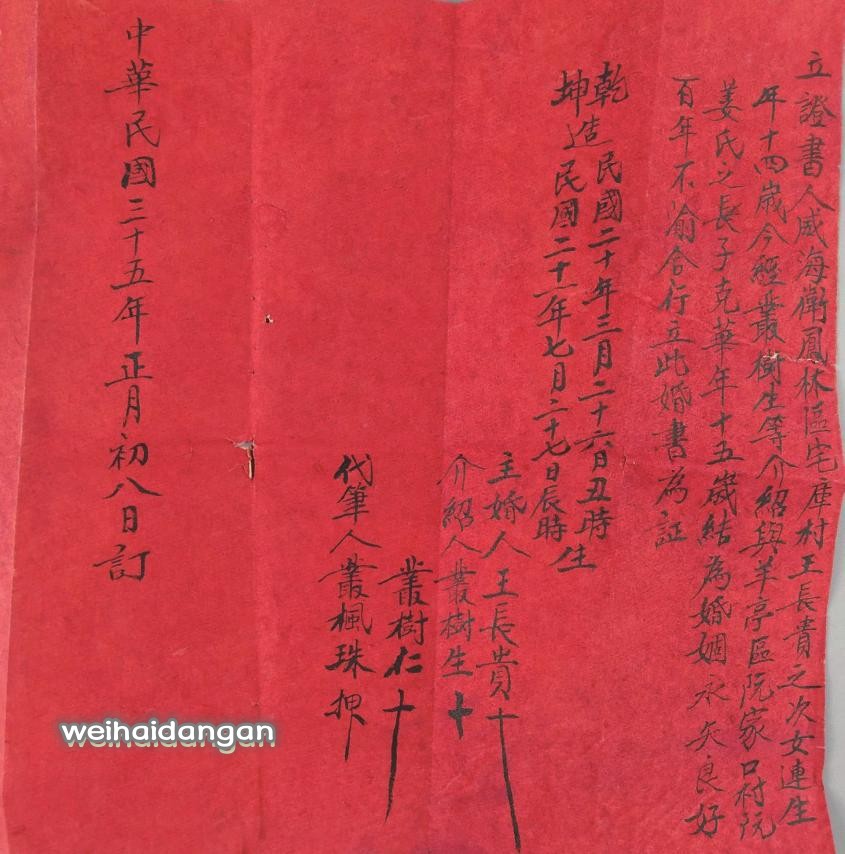 立證書人威海衛鳳林區宅庫村王長貴之次女連生
年十四歲今經叢樹生等介紹與羊亭區阮家口村阮
姜氏之長子克華年十五歲結為婚姻永矢良好
百年不渝合行立此婚書為証
乾造民國二十年三月二十六日丑時
坤造民國二十一年七月二十七日辰時生
主婚人王長貴十
介紹人叢樹生十
叢樹仁十
代筆人叢楓珠押
中華民國三十五年正月初八日訂
weihaidangan